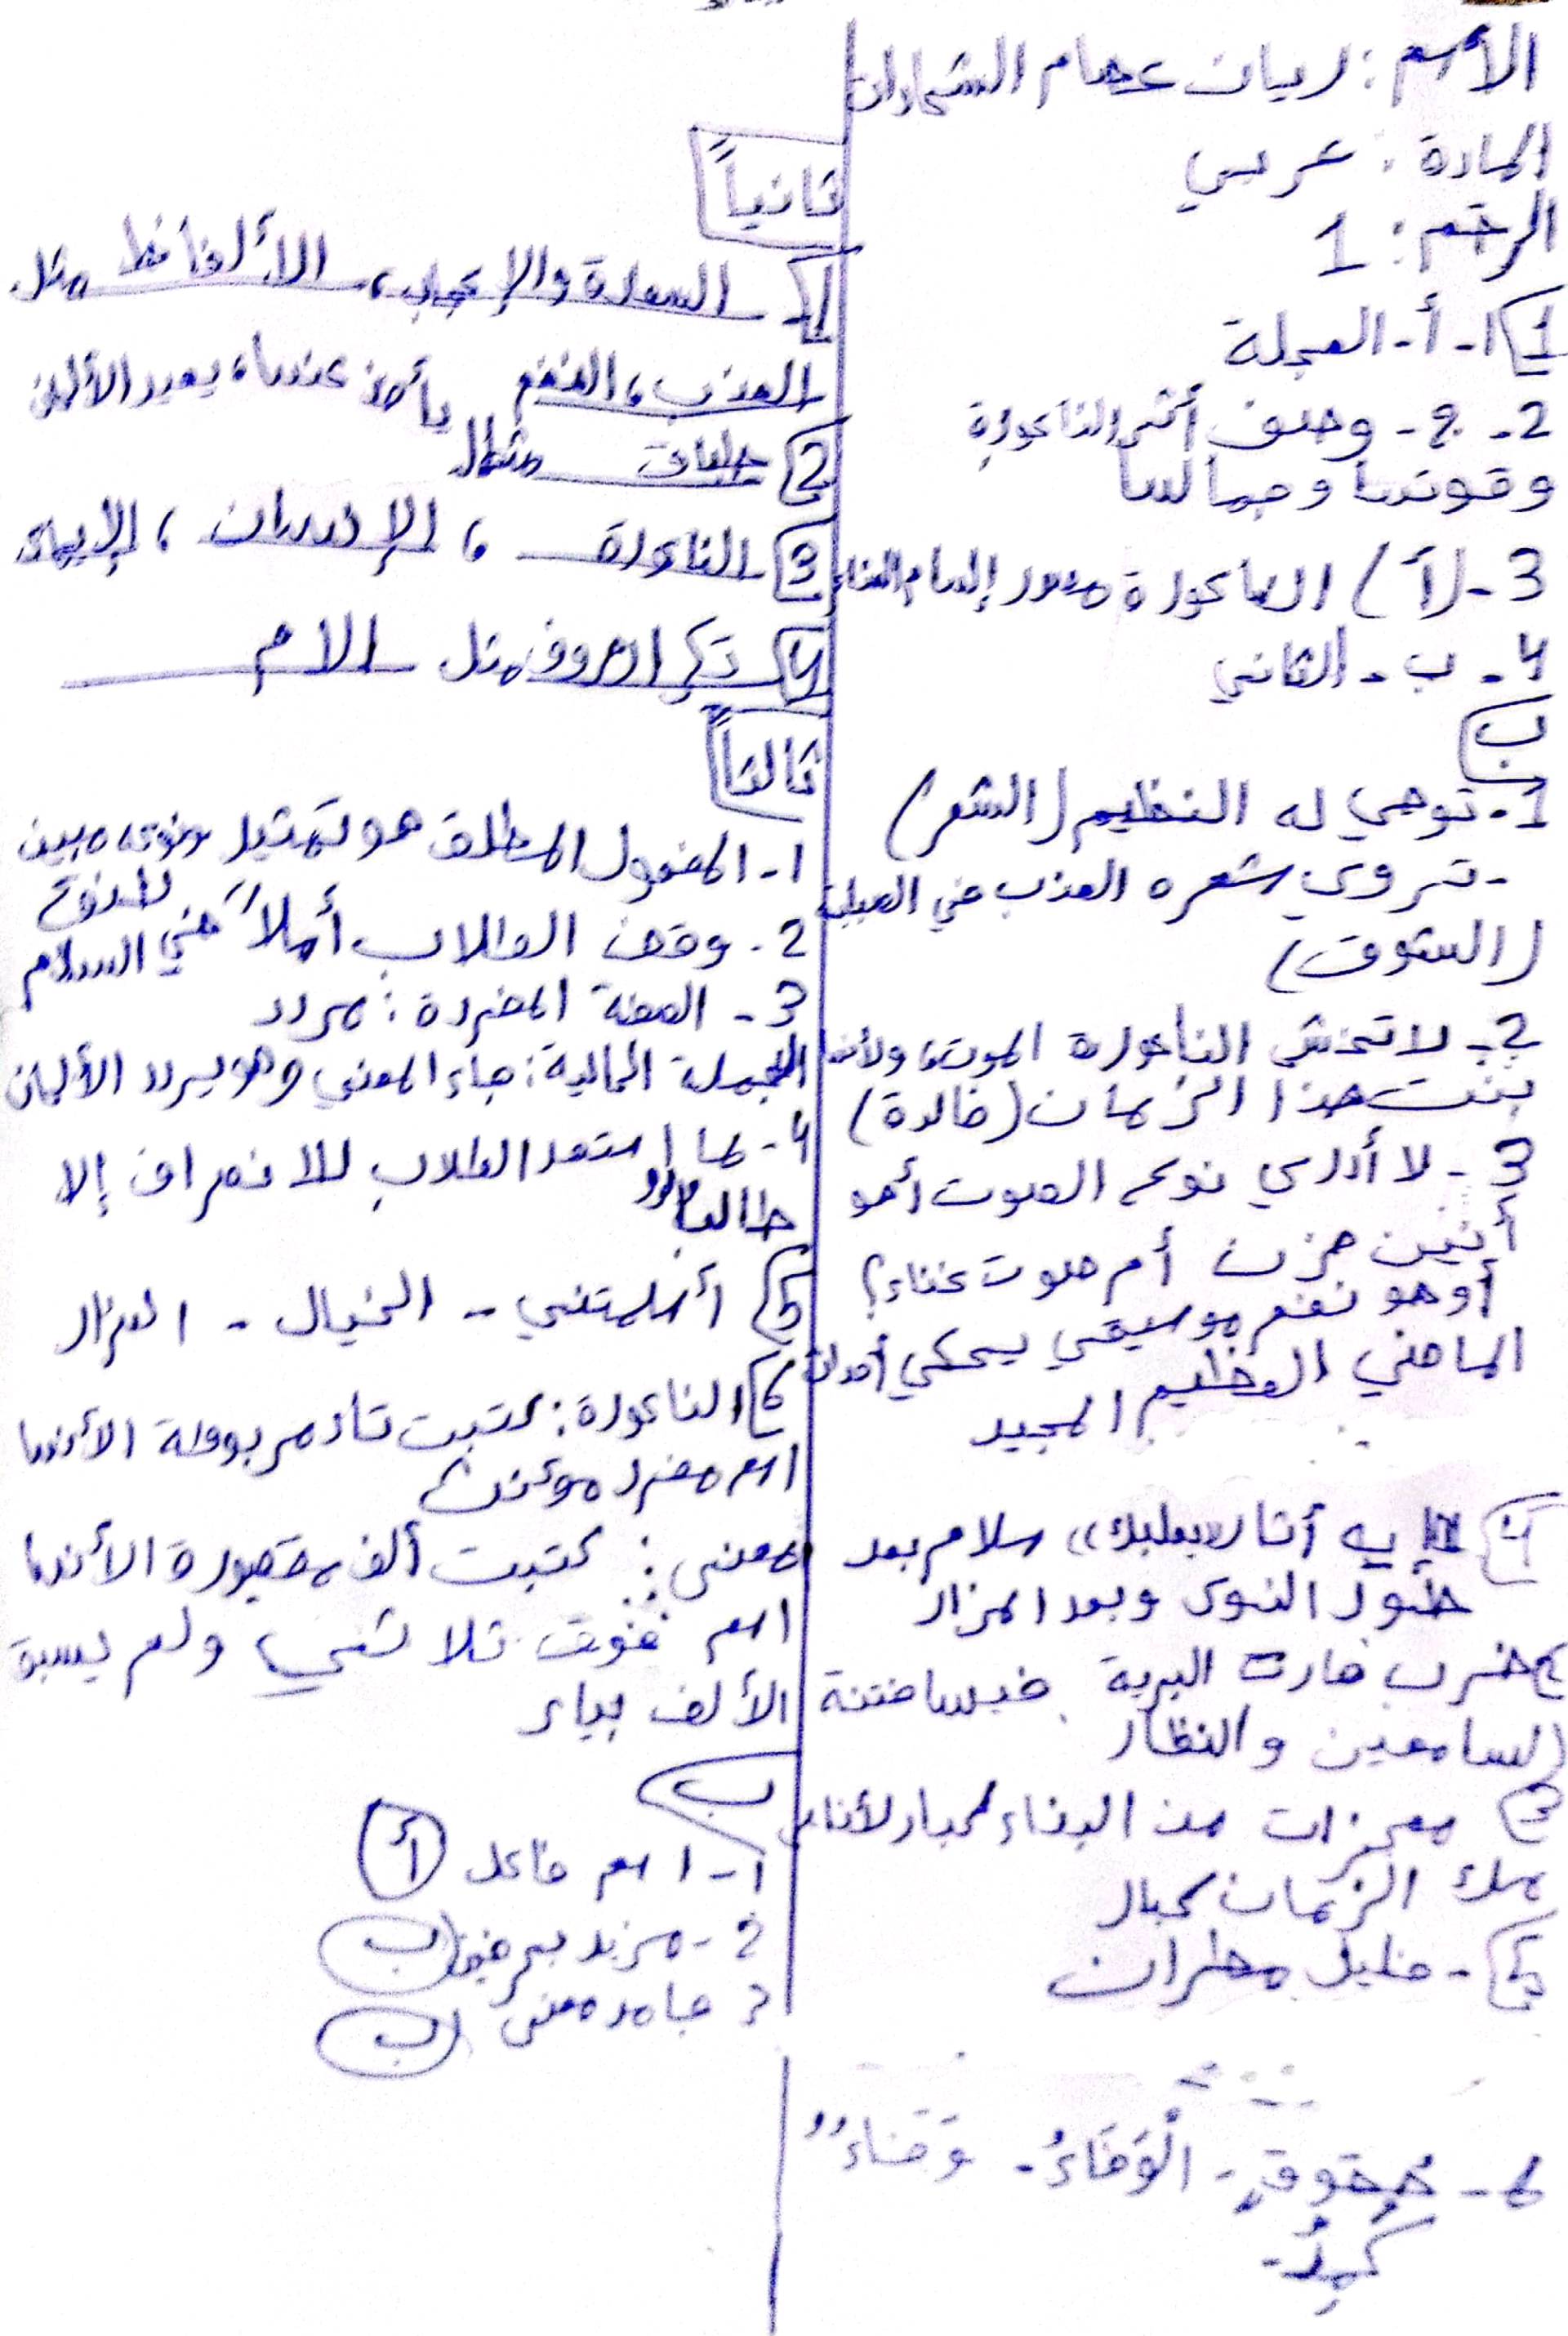 الأسم : ريان عصام الشحادات
المادة : عربي
الرقم : 1
1 1- أ - العجلة
2- ج - وصف أثر الناعورة
وقوتها وجمالها
3- (أ) الناعورة مصدر إلهام الغناء
4- ب - الثاني
ب
1- توحي له النظيم (الشعر)
- تروي شعره العذب في
(الشوق)
2- لا تخش الناعورة الموت، ولأنها
بنت هذا الزمان (خالدة)
3- لا أدري نوع الصوت أهو
أنين حزن أم صوت غناء؟
أو هو نغم موسيقي يحكي أمجاد
الماضي العظيم المجيد
إيه أثار «بعلبك» سلام بعد
طول النوى وبعد المزار
خرب حارت البرية فيها فتنة
السامعين والنظار
3 معجزات من البناء كبار لأناس
ملء الزمان كبار
5- خليل مطران
6- حقوق - الْوَفَاءُ - وَفَاءُ
ثانياً
1- السهولة والإعجاب، الألفاظ مثل
العذب، النغم
2 طباق مثال يأخذ عندما، يعيد الألحان
3 الناعورة ، الإنسان ،
4 تكرار حروف مثل الام
ثالثاً
1- المفعول المطلق هو تمثيل ونوعه مبين
للنوع
2- وقف الطلاب أملاً في السلام
3- الصفة المفردة : مردد
الجملة الحالية : جاء المغني وهو يردد الألحان
4- ما استعد الطلاب للانصراف إلا
طالباً
5 ألهمتني - الخيال - الهزار
6 الناعورة : كتبت تاء مربوطة لأنها
اسم مفرد مؤنث
مغنى : كتبت ألف مقصورة لأنها
اسم فوق ثلاثي ولم يسبق
الألف بياء
ب
1- اسم فاعل أ
2- مزيد بحرفين ب
3 جامد معنى ب